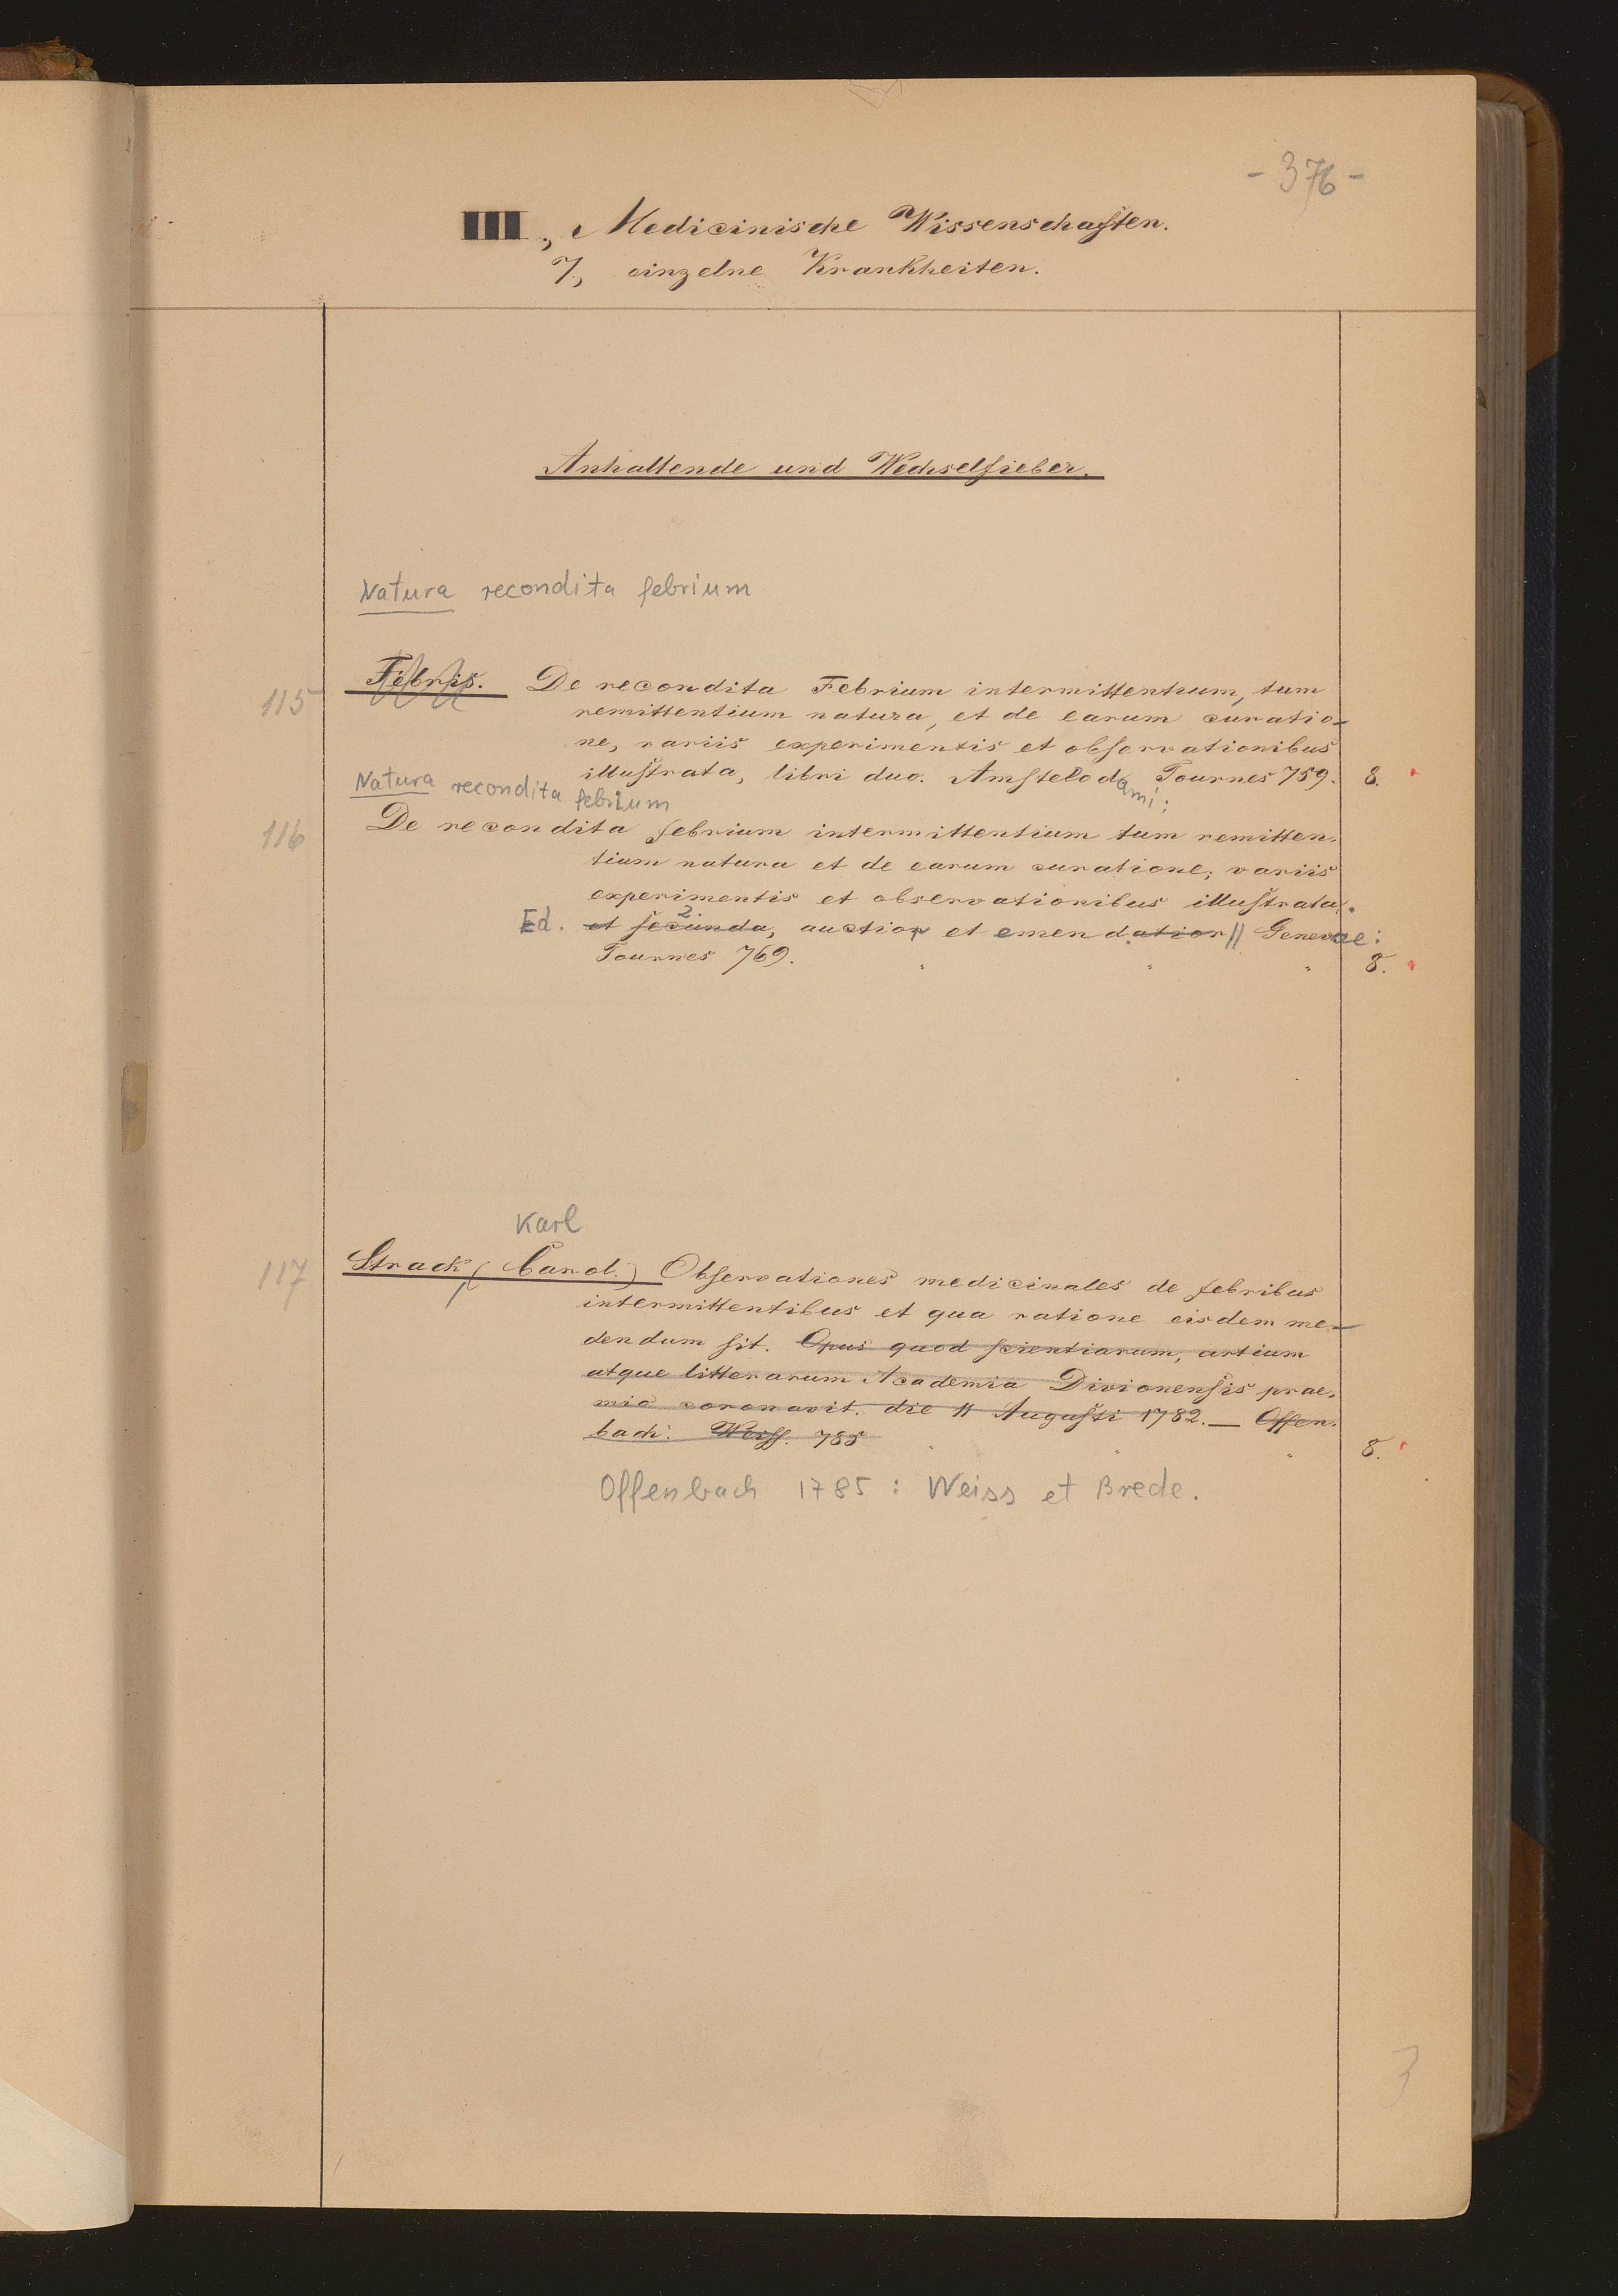 - 376 -
III, Medicinische Wissenschaften.
7, einzelne Krankheiten.
Anhaltende und Wechselfieber.
Natura recondita febrium
115 Febris. De recondita Febrium intermittentium, tum
remittentium natura, et de earum curatio-
ne, variis experimentis et observationibus
illustrata, libri duo. Amstelodami: Tournes 759. 8.
Natura recondita febrium
116 De recondita febrium intermittentium tum remitten-
tium natura et de earum curatione; variis
experimentis et observationibus illustrata.
Ed. 2. et secunda, auctior et emendatior || Genevae:
Tournes 769. " " " 8.
Karl
117 Strack (Carol.) Observationes medicinales de febribus
intermittentibus et qua ratione eisdem me-
dendum sit. Opus quod scientiarum, artium
atque litterarum Academia Divionensis prae-
mio coronavit. die 11 Augusti 1782. — Offen-
bach: Weiss. 785 " " " 8.
Offenbach 1785 : Weiss et Brede.
3